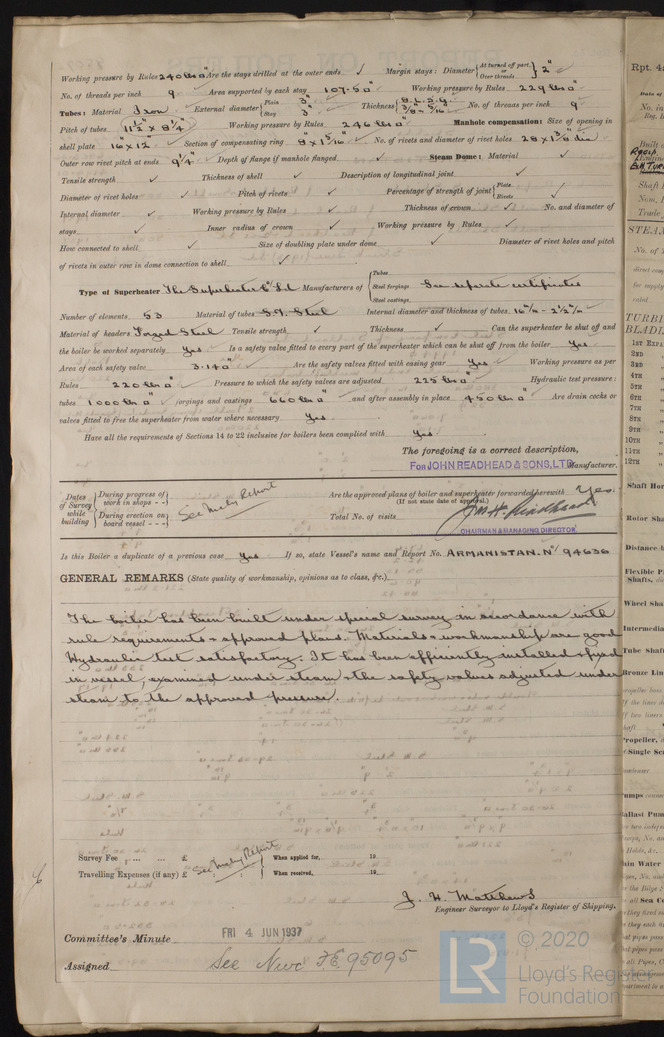 Working pressure by Rules 240 lbs □" Are the stays drilled at the outer ends ✓ Margin stays: Diameter {At turned off part, or Over threads} 2"
No. of threads per inch 9 Area supported by each stay 107.5 □" Working pressure by Rules 229 lbs □"
Tubes: Material Iron External diameter {Plain 3" Stay 3" Thickness {8 L.S.G. 3/8" - 5/16" No. of threads per inch 9
Pitch of tubes 11 1/2" x 8 1/4" Working pressure by Rules 246 lbs □" Manhole compensation: Size of opening in
shell plate 16 x 12 Section of compensating ring No. of rivets and diameter of rivet holes
Outer row rivet pitch at ends 9 1/4" Depth of flange if manhole flanged ✓ Steam Dome: Material ✓
Tensile strength ✓ Thickness of shell ✓ Description of longitudinal joint ✓
Diameter of rivet holes ✓ Pitch of rivets ✓ Percentage of strength of joint {Plate Rivets ✓
Internal diameter ✓ Working pressure by Rules ✓ Thickness of crown ✓ No. and diameter of
stays ✓ Inner radius of crown ✓ Working pressure by Rules ✓
How connected to shell ✓ Size of doubling plate under dome ✓ Diameter of rivet holes and pitch
of rivets in outer row in dome connection to shell ✓
Type of Superheater The Superheater Co Ld Manufacturers of {Tubes Steel forgings Steel castings See separate certificates
Number of elements 53 Material of tubes S.D. Steel Internal diameter and thickness of tubes 16 m/m - 2 1/2 m/m
Material of headers Forged Steel Tensile strength ✓ Thickness ✓ Can the superheater be shut off and
the boiler be worked separately Yes Is a safety valve fitted to every part of the superheater which can be shut off from the boiler Yes
Area of each safety valve 3.140" Are the safety valves fitted with easing gear Yes Working pressure as per
Rules 220 lbs □" Pressure to which the safety valves are adjusted 225 lbs □" Hydraulic test pressure:
tubes 1000 lbs □" forgings and castings 660 lbs □" and after assembly in place 450 lbs □" Are drain cocks or
valves fitted to free the superheater from water where necessary Yes
Have all the requirements of Sections 14 to 22 inclusive for boilers been complied with Yes
The foregoing is a correct description,
FOR JOHN READHEAD & SONS, LTD. Manufacturer.
Dates of Survey while building {During progress of work in shops - - During erection on board vessel - - - See Mchy Report
Are the approved plans of boiler and superheater forwarded herewith Yes.
(If not state date of approval.)
Total No. of visits
CHAIRMAN & MANAGING DIRECTOR.
Is this Boiler a duplicate of a previous case Yes If so, state Vessel's name and Report No. ARMANISTAN. No 94636
GENERAL REMARKS (State quality of workmanship, opinions as to class, &c.)
The boiler has been built under special survey in accordance with
rule requirements & approved plans. Materials & workmanship are good
Hydraulic test satisfactory. It has been efficiently installed & fixed
in vessel, examined under steam & the safety valves adjusted under
steam to the approved pressure.
Survey Fee ... ... ... £ See Mchy Report When applied for, 19
Travelling Expenses (if any) £ When received, 19
J. H. Matthews
Engineer Surveyor to Lloyd's Register of Shipping.
Committee's Minute FRI 4 JUN 1937
Assigned See Nwc F.E. 95095
LR © 2020
Lloyd's Register
Foundation
Rpt. 4
STEAM
TURBI
BLADI
1ST EXPA
2ND
3RD
4TH
5TH
6TH
7TH
8TH
9TH
10TH
11TH
12TH
Shaft Hor
Rotor Sha
Distance b
Flexible Pi
Shafts, d
Wheel Sha
Intermedia
Tube Shaft
Bronze Lin